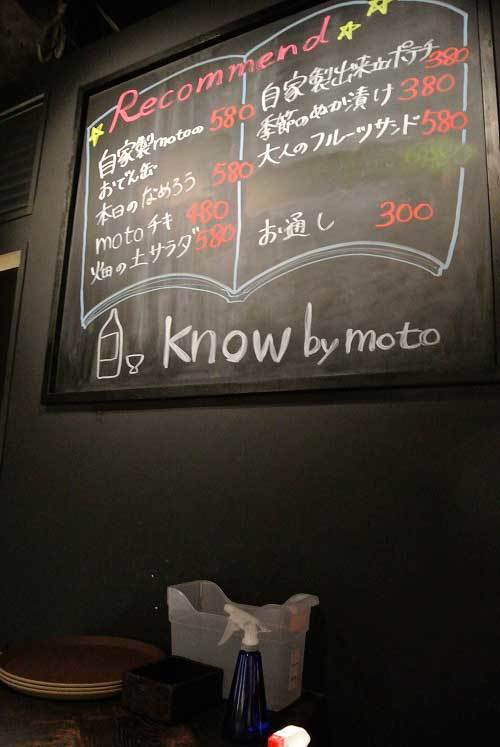 Recommend
自家製motoの
おでん缶 580
本日のなめろう 580
motoチキ 480
畑の土サラダ 580
自家製出来立ポテチ 380
季節のぬか漬け 380
大人のフルーツサンド 580
お通し 300
know by moto